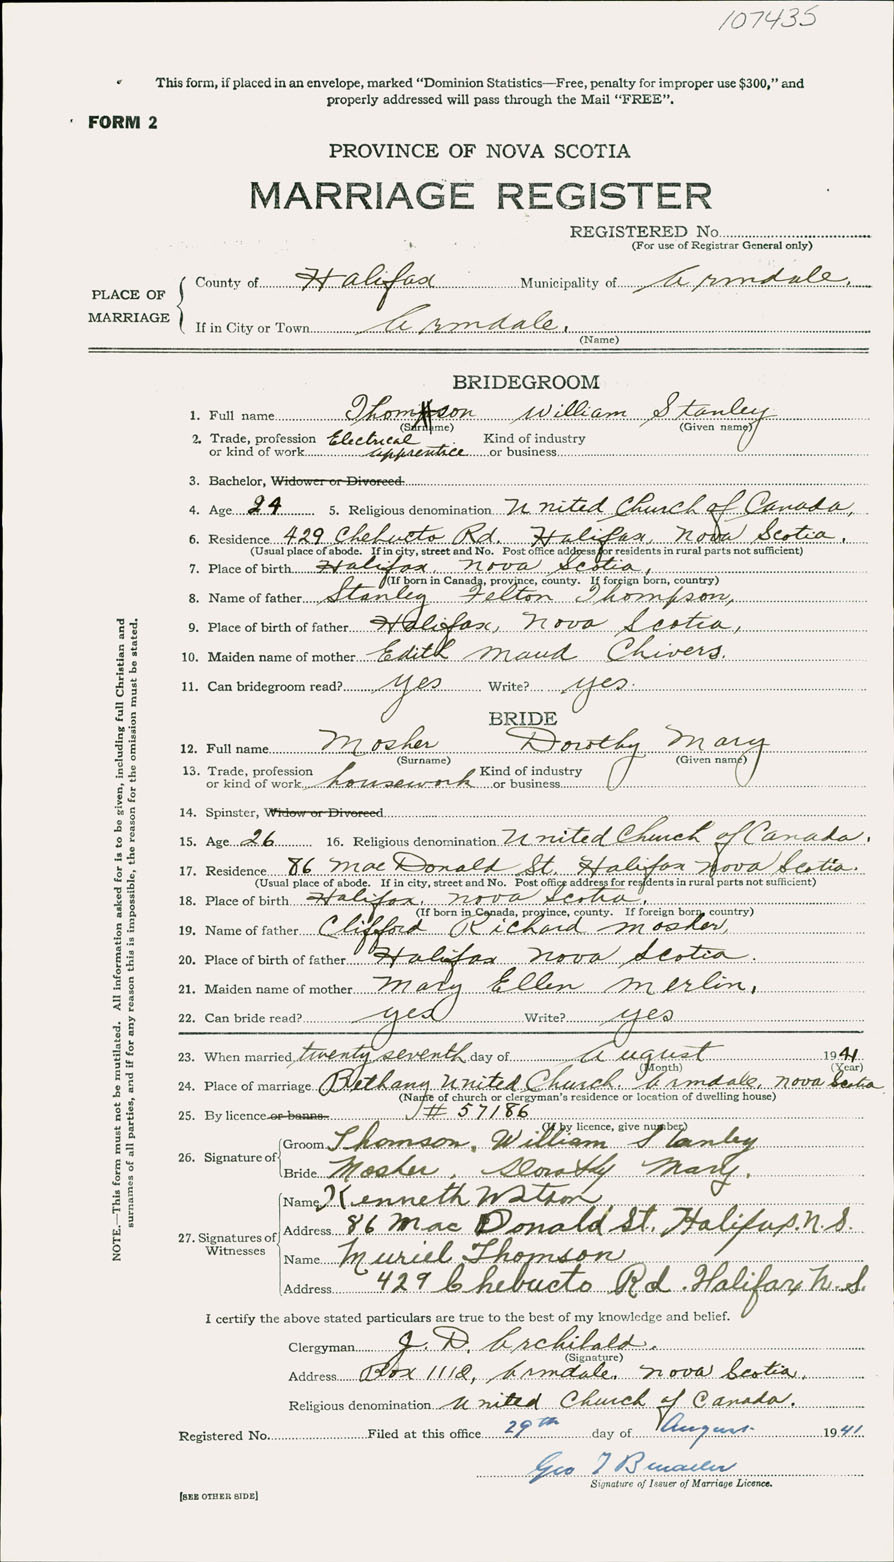 107435
This form, if placed in an envelope, marked “Dominion Statistics—Free, penalty for improper use $300,” and
properly addressed will pass through the Mail “FREE”.
FORM 2
PROVINCE OF NOVA SCOTIA
MARRIAGE REGISTER
REGISTERED No.
(For use of Registrar General only)
PLACE OF MARRIAGE
County of Halifax Municipality of Armdale.
If in City or Town Armdale.
(Name)
BRIDEGROOM
1. Full name Thomson William Stanley
(Surname) (Given name)
2. Trade, profession or kind of work Electrical apprentice Kind of industry or business
3. Bachelor, Widower or Divorced
4. Age 24 5. Religious denomination United Church of Canada,
6. Residence 429 Chebucto Rd. Halifax, Nova Scotia.
(Usual place of abode. If in city, street and No. Post office address for residents in rural parts not sufficient)
7. Place of birth Halifax, Nova Scotia,
(If born in Canada, province, county. If foreign born, country)
8. Name of father Stanley Felton Thompson,
9. Place of birth of father Halifax, Nova Scotia,
10. Maiden name of mother Edith Maud Chivers.
11. Can bridegroom read? yes Write? yes.
BRIDE
12. Full name Mosher Dorothy Mary
(Surname) (Given name)
13. Trade, profession or kind of work housework Kind of industry or business
14. Spinster, Widow or Divorced
15. Age 26 16. Religious denomination United Church of Canada.
17. Residence 86 MacDonald St. Halifax Nova Scotia.
(Usual place of abode. If in city, street and No. Post office address for residents in rural parts not sufficient)
18. Place of birth Halifax, Nova Scotia.
(If born in Canada, province, county. If foreign born, country)
19. Name of father Clifford Richard Mosher,
20. Place of birth of father Halifax Nova Scotia.
21. Maiden name of mother Mary Ellen Merlin,
22. Can bride read? yes Write? yes
23. When married twenty seventh day of August 1941
(Month) (Year)
24. Place of marriage Bethany United Church, Armdale, Nova Scotia
(Name of church or clergyman's residence or location of dwelling house)
25. By licence or banns # 57186
(If by licence, give number)
26. Signature of
Groom Thomson, William Stanley
Bride Mosher, Dorothy Mary.
27. Signatures of Witnesses
Name Kenneth Watson
Address 86 MacDonald St. Halifax. N.S.
Name Muriel Thomson
Address 429 Chebucto Rd. Halifax, N.S.
I certify the above stated particulars are true to the best of my knowledge and belief.
Clergyman J. D. Archibald.
(Signature)
Address Box 1112, Armdale, Nova Scotia,
Religious denomination United Church of Canada.
Registered No. Filed at this office 29th day of August 1941
Geo T
Signature of Issuer of Marriage Licence.
[SEE OTHER SIDE]
NOTE.—This form must not be mutilated. All information asked for is to be given, including full Christian and
surnames of all parties, and if for any reason this is impossible, the reason for the omission must be stated.